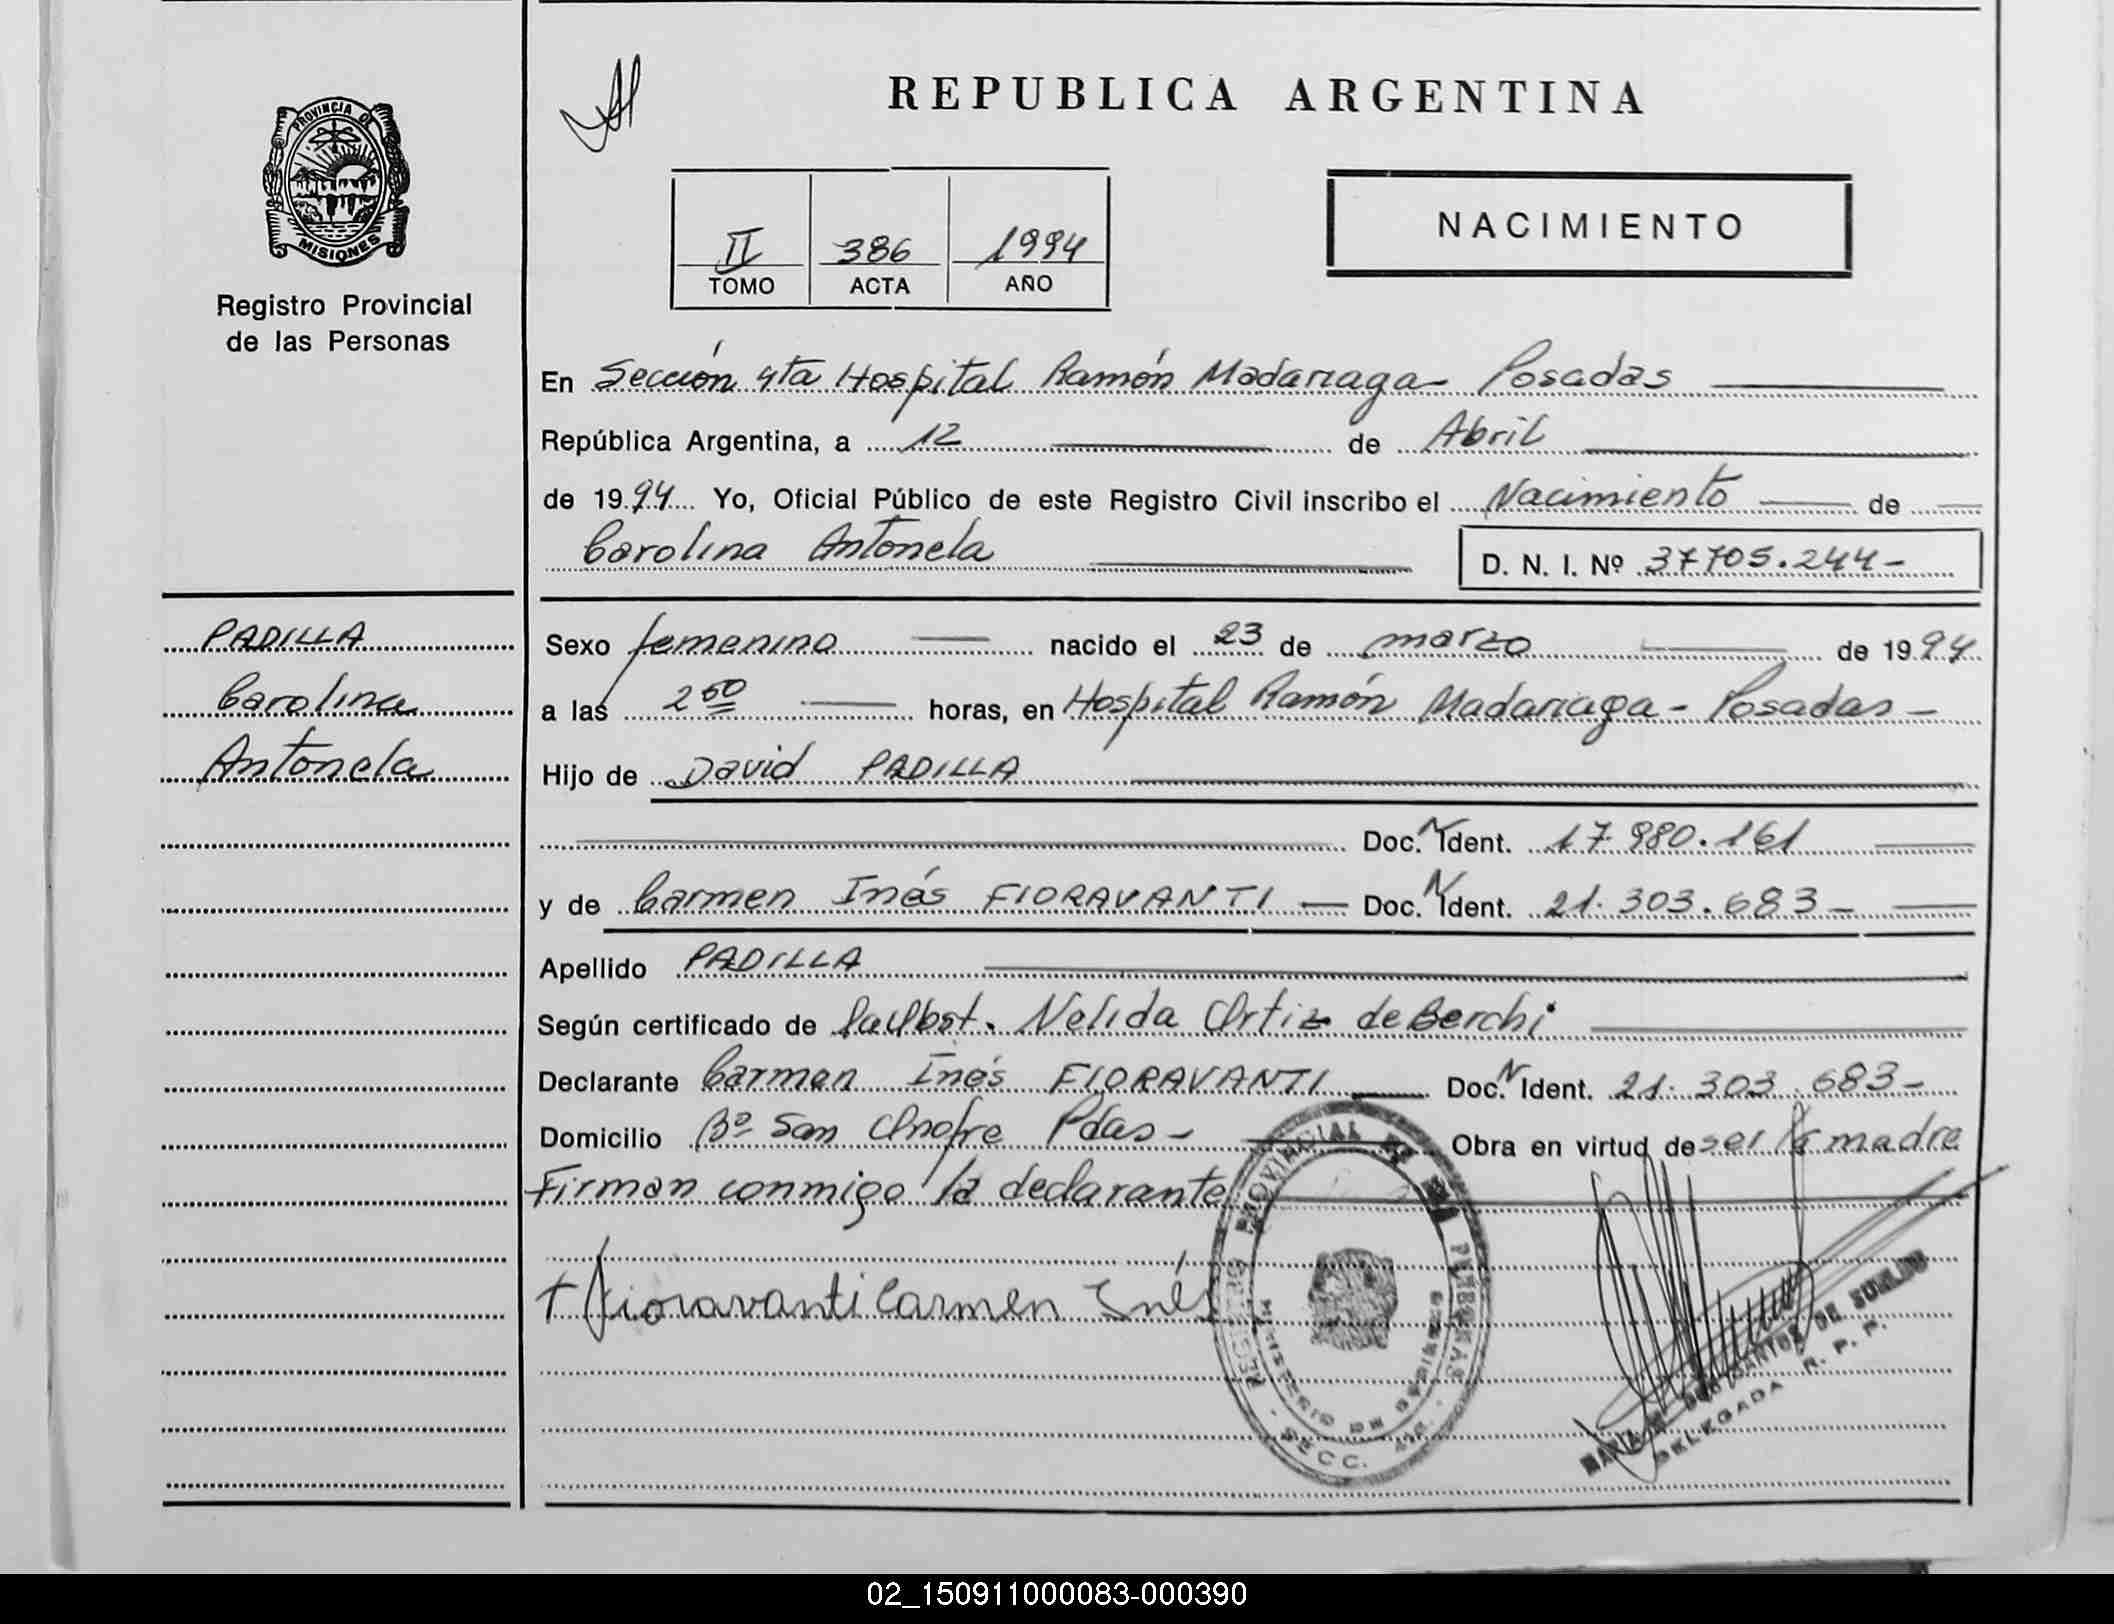 REPUBLICA ARGENTINA
PROVINCIA DE
MISIONES
Registro Provincial
de las Personas
II 386 1994
TOMO ACTA AÑO
NACIMIENTO
En Sección 4ta Hospital Ramón Madariaga - Posadas
República Argentina, a 12 de Abril
de 1994 Yo, Oficial Público de este Registro Civil inscribo el Nacimiento de
Carolina Antonela
D. N. I. Nº 37705.244-
PADILLA
Carolina
Antonela
Sexo femenino nacido el 23 de marzo de 1994
a las 2 50 horas, en Hospital Ramón Madariaga - Posadas -
Hijo de David PADILLA
Doc. N Ident. 17 980.161
y de Carmen Inés FIORAVANTI — Doc. N Ident. 21.303.683 -
Apellido PADILLA
Según certificado de Nelida Ortiz de Berchi
Declarante Carmen Inés FIORAVANTI Doc. N Ident. 21.303.683-
Domicilio Bº San Onofre Pdas - Obra en virtud de ser la madre
Firman conmigo la declarante
Fioravanti Carmen Inés
REGISTRO PROVINCIAL DE LAS PERSONAS
MINISTERIO DE GOBIERNO
- SECC. 4ta. -
DELEGADA R. P. P.
02_150911000083-000390